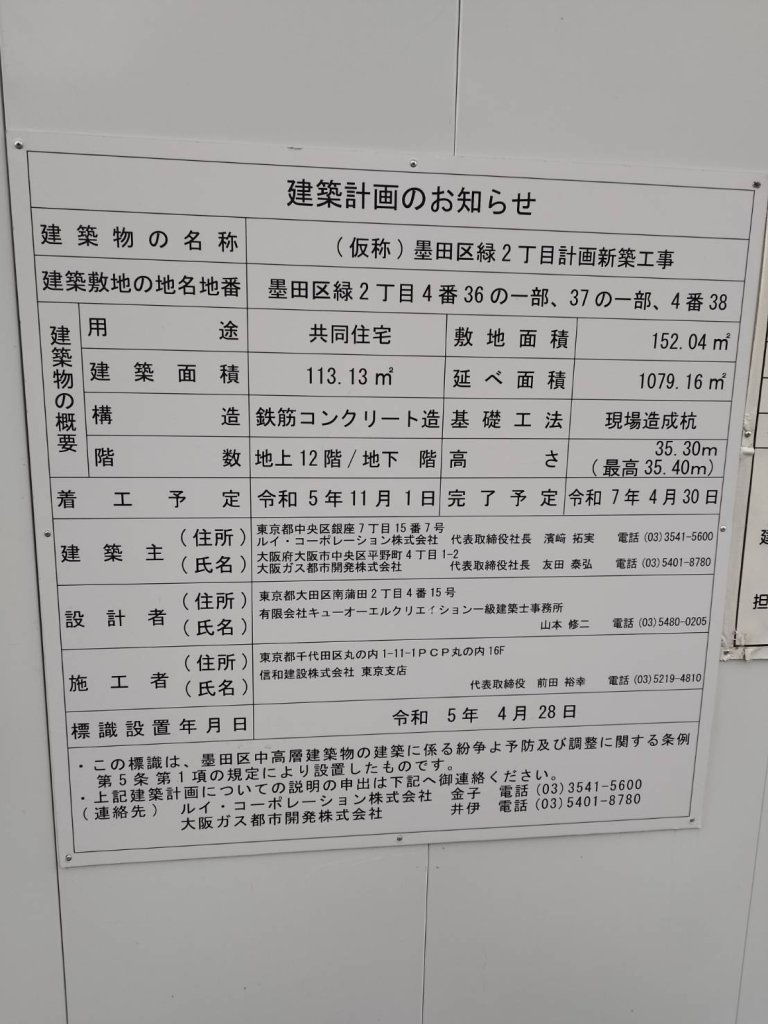 建築計画のお知らせ
建築物の名称 （仮称）墨田区緑２丁目計画新築工事
建築敷地の地名地番 墨田区緑２丁目４番36の一部、37の一部、４番38
建築物の概要
用途 共同住宅 敷地面積 152.04㎡
建築面積 113.13㎡ 延べ面積 1079.16㎡
構造 鉄筋コンクリート造 基礎工法 現場造成杭
階数 地上12階/地下 階 高さ 35.30m
（最高35.40m）
着工予定 令和 5年11月 1日 完了予定 令和 7年 4月30日
建築主 （住所） 東京都中央区銀座７丁目15番７号
（氏名） ルイ・コーポレーション株式会社 代表取締役社長 濱﨑 拓実 電話(03)3541-5600
大阪府大阪市中央区平野町４丁目1-2
大阪ガス都市開発株式会社 代表取締役社長 友田 泰弘 電話(03)5401-8780
設計者 （住所） 東京都大田区南蒲田２丁目４番15号
（氏名） 有限会社キューオーエルクリエイション一級建築士事務所
山本 修二 電話(03)5480-0205
施工者 （住所） 東京都千代田区丸の内1-11-1ＰＣＰ丸の内16F
（氏名） 信和建設株式会社 東京支店
代表取締役 前田 裕幸 電話(03)5219-4810
標識設置年月日 令和 5年 4月 28日
・この標識は、墨田区中高層建築物の建築に係る紛争よ予防及び調整に関する条例
第５条 第１項の規定により設置したものです。
・上記建築計画についての説明の申出は下記へ御連絡ください。
（連絡先） ルイ・コーポレーション株式会社 金子 電話(03)3541-5600
大阪ガス都市開発株式会社 井伊 電話(03)5401-8780
担